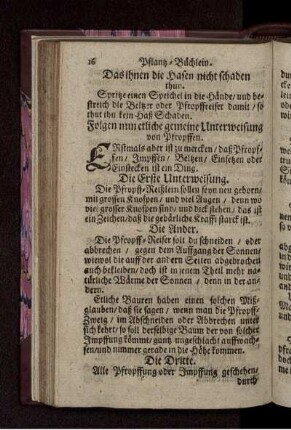 16 Pflantz-Büchlein.
Das ihnen die Hasen nicht schaden
thun.
Spritze einen Speichel in die Hände/ und be-
streich die Beltzer oder Pfropffreiser damit/ so
thut ihn kein Haß Schaden.
Folgen nun etliche gemeine Unterweisung
von Pfropffen.
ERstmals aber ist zu mercken/ daß Pfropf-
fen/ Impffen/ Beltzen/ Einsetzen oder
Einstecken ist ein Ding.
Die Erste Unterweisung.
Die Pfropff-Reißlein sollen seyn neu geborn/
mit grossen Knospen/ und viel Augen/ denn wo
viel grosser Knospen sind/ und dick stehen/ das ist
ein Zeichen/ daß die gebärliche Krafft starck ist.
Die Ander.
Die Pfropff-Reiser solt du schneiden/ oder
abbrechen/ gegen dem Auffgang der Sonnen/
wiewol die auff der andern Seiten abgebrochen
auch bekleiben/ doch ist in jenem Theil mehr na-
türliche Wärme der Sonnen/ denn in der an-
dern.
Etliche Bauren haben einen solchen Miß-
glauben/ daß sie sagen/ wenn man die Pfropff-
Zweig/ im Abschneiden oder Abbrechen unter
sich kehrt/ so soll derselbige Baum der von solcher
Impffung kömmt/ gantz ungeschlacht auffwach-
sen/ und nimmer gerade in die Höhe kommen.
Die Dritte.
Alle Pfropffung oder Impffung geschehen/
durch